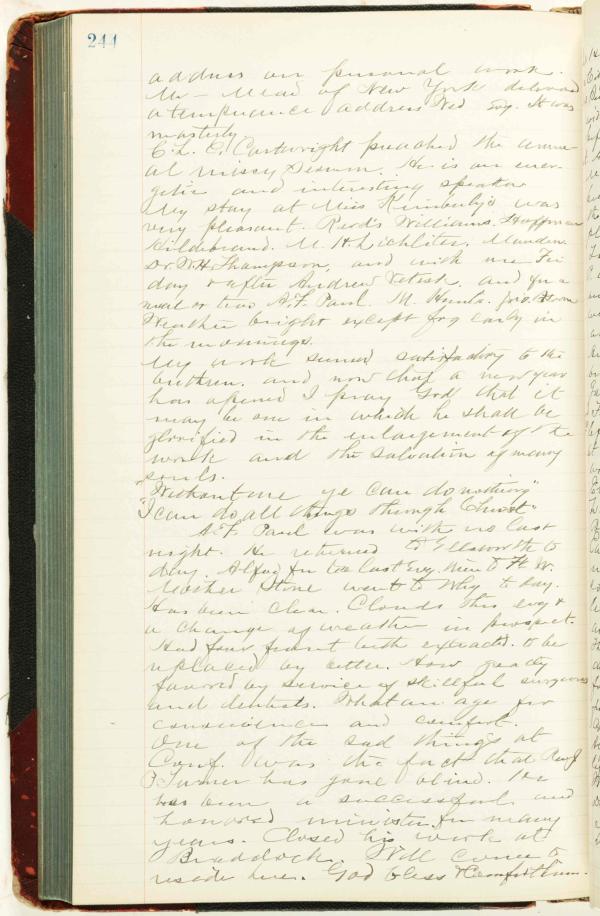 244
address on personal work.
Mr Mead of New York delivered
a temperance address Wed Evg. It was
masterly
C. L. C. Cartwright preached the annu-
al missy Sermon. He is an ener-
getic and interesting speaker
My stay at Miss Kimberly's was
very pleasant. Revds Williams, Huffman
Hildebrand. M. H. Lichliter. Mander.
Dr. W. H. Thompson, and with me Fri
day & after Andrew and for a
meal or two A. F. Paul. M.
Weather bright except fog early in
the mornings.
My work seemed satisfactory to the
brethren. and now that a new year
has opened I pray God that it
may be one in which he shall be
glorified in the enlargement of the
work and the salvation of many
souls.
"Without me ye can do nothing"
"I can do all things through Christ"
A. F. Paul was with us last
night. He returned to Ellsworth to
day. Alfred for tea last Evg. to Ft W.
Mother Stone went to Why to day.
Has been clear. Clouds this evg &
a change of weather in prospect.
Had four front teeth extracted. to be
replaced by better. How greatly
favored by service of skillful surgeons
and dentists. What an age for
conveniences and comfort.
One of the sad things at
Conf. was the fact that Rev J
B Turner has gone blind. He
has been a successful and
honored minister for many
years. Closed his work at
Braddock. Will come to
reside here. God bless & comfort him.